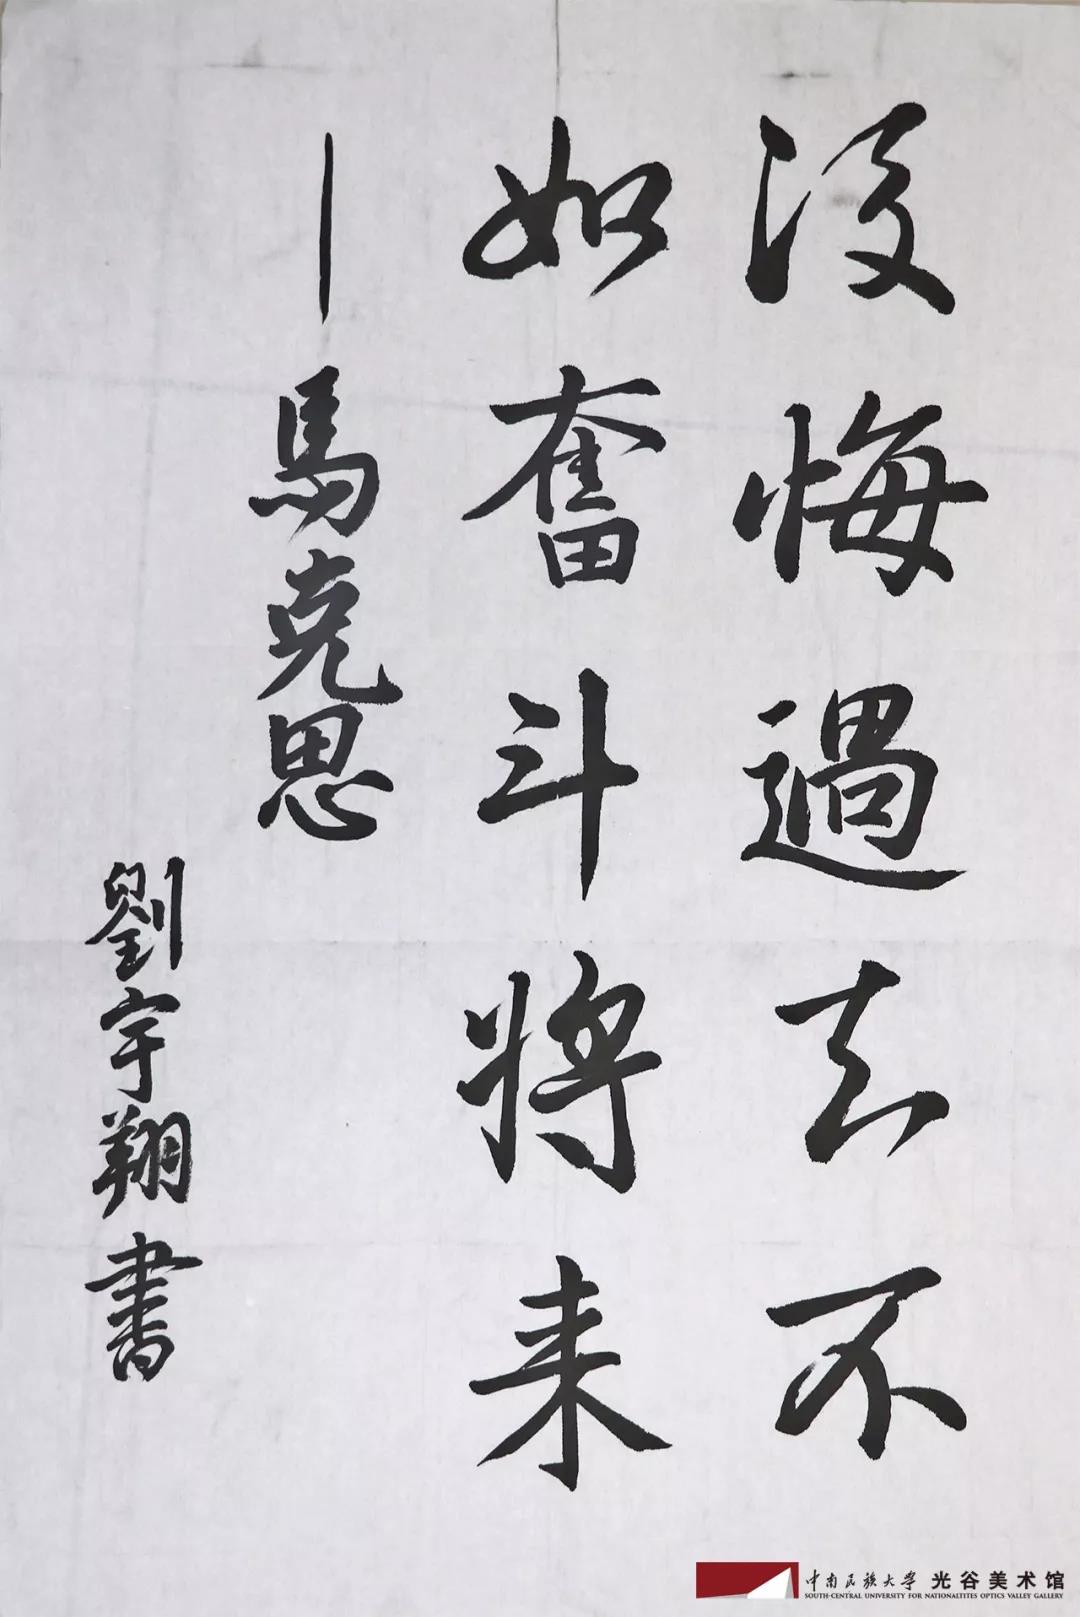 後悔過去不
如奮斗將来
—馬克思
劉宇翔書
中南民族大学 光谷美术馆
SOUTH-CENTRAL UNIVERSITY FOR NATIONALITITES OPTICS VALLEY GALLERY